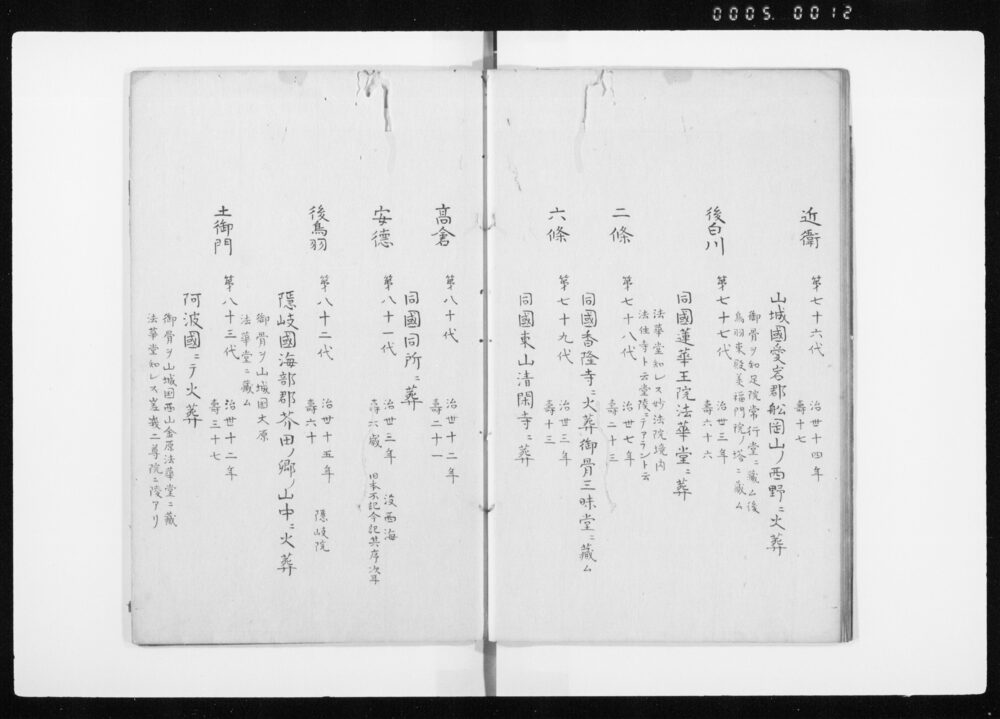 0005.0012
近衛
第七十六代
治世十四年
壽十七
山城國愛宕郡舩岡山ノ西野ニ火葬
御骨ヲ知足院常行堂ニ藏ム後
鳥羽東殿美福門院ノ塔ニ藏ム
後白川
第七十七代
治世三年
壽六十六
同國蓮華王院法華堂ニ葬
法華堂知レス妙法院境内
法住寺ト云堂陵ニテアラント云
二條
第七十八代
治世七年
壽二十三
同國香隆寺ニ火葬御骨三昧堂ニ藏ム
六條
第七十九代
治世三年
壽十三
同國東山清閑寺ニ葬
高倉
第八十代
治世十二年
壽二十一
同國同所ニ葬
安徳
第八十一代
治世三年
壽六歳
没西海
旧本不記今記其序次耳
後鳥羽
第八十二代
治世十五年
壽六十
隠岐院
隠岐國海部郡芥田ノ郷ノ山中ニ火葬
御骨ヲ山城国大原
法華堂ニ藏ム
土御門
第八十三代
治世十二年
壽三十七
阿波國ニテ火葬
御骨ヲ山城国西山金原法華堂ニ藏
法華堂知レス嵯峨二尊院ニ陵アリ